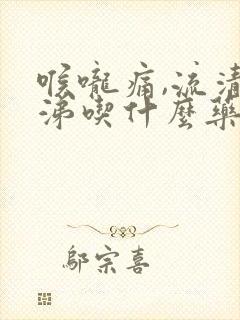 喉嚨痛,流清
涕喫什麼藥
鄔宗喜